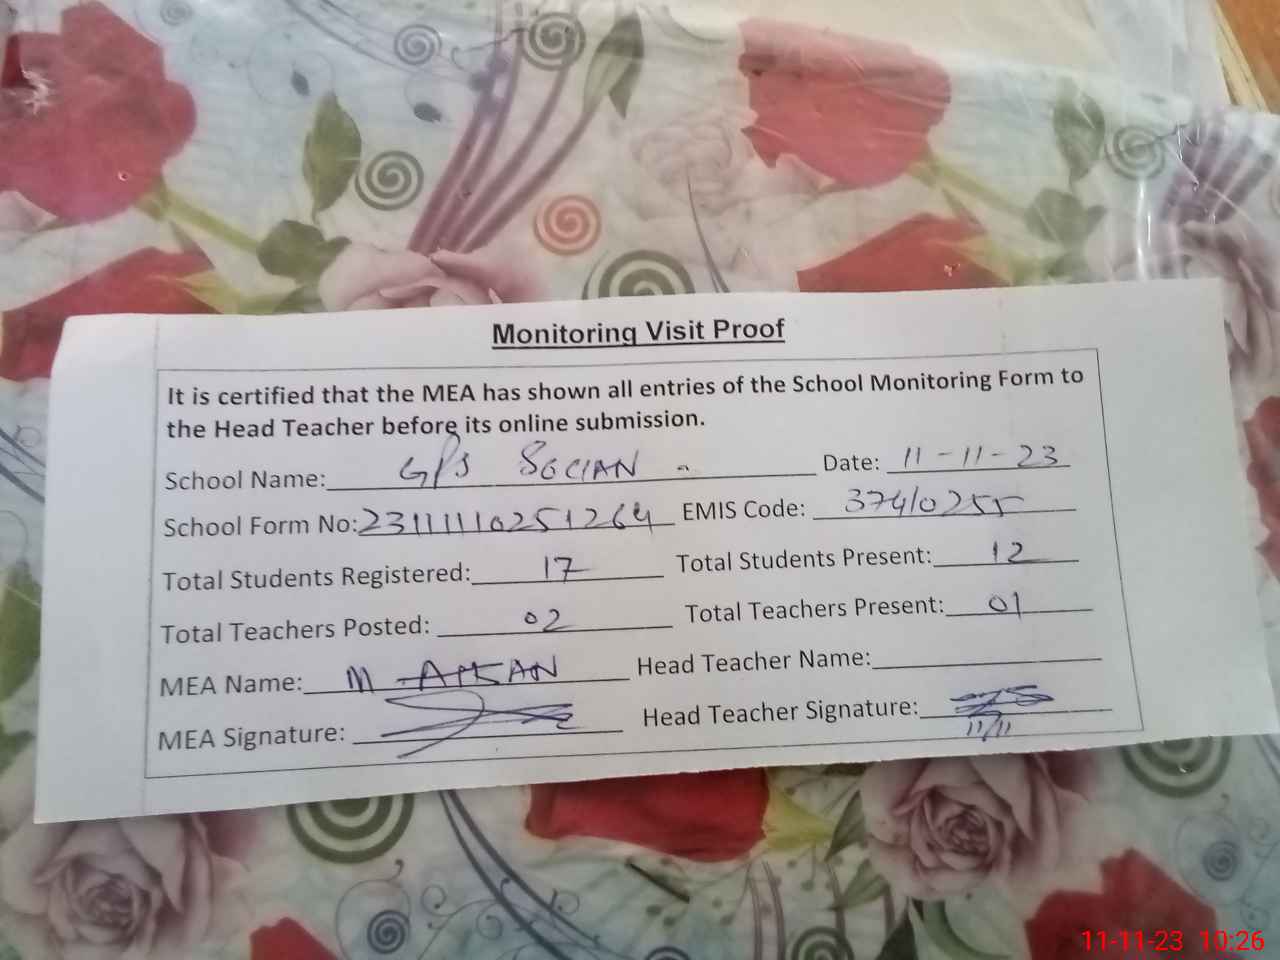 Monitoring Visit Proof
It is certified that the MEA has shown all entries of the School Monitoring Form to
the Head Teacher before its online submission.
School Name: GPS SOCIAN Date: 11-11-23
School Form No: 231111110251264 EMIS Code: 37410255
Total Students Registered: 17 Total Students Present: 12
Total Teachers Posted: 02 Total Teachers Present: 01
MEA Name: M Head Teacher Name:
MEA Signature: Head Teacher Signature:
11/11
11-11-23 10:26